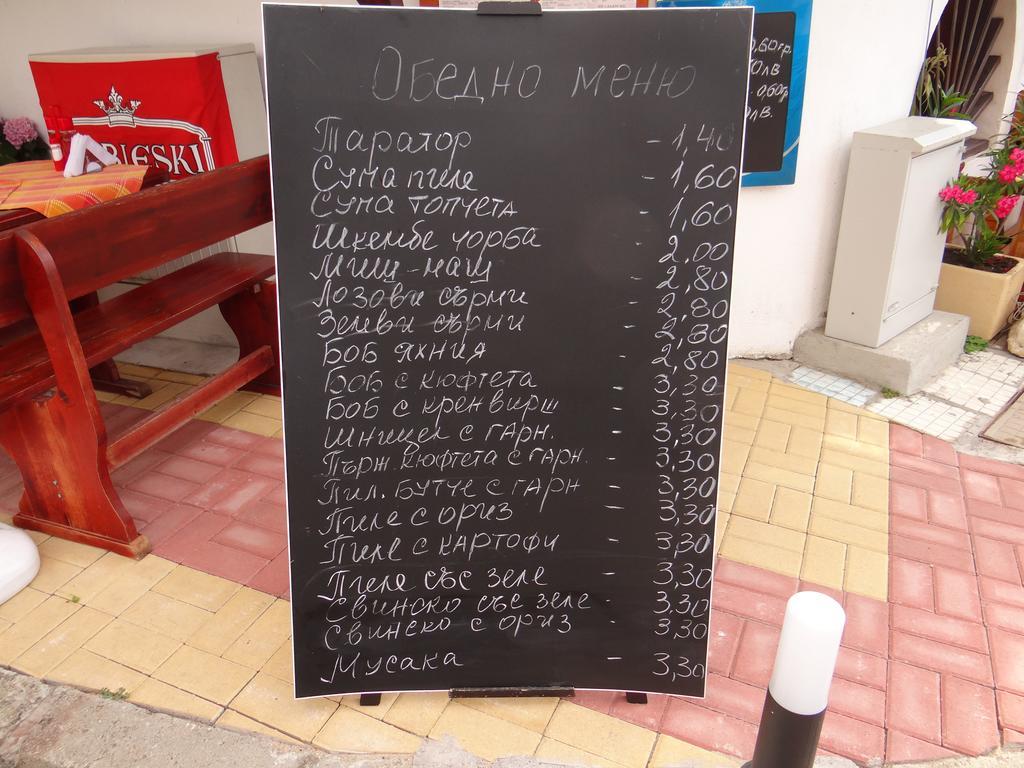 Обедно меню
Таратор - 1,40
Супа пиле - 1,60
Супа топчета - 1,60
Шкембе чорба - 2,00
Миш-маш - 2,80
Лозови сърми - 2,80
Зелеви сърми - 2,80
Боб яхния - 2,80
Боб с кюфтета - 3,30
Боб с кренвирш - 3,30
Шницел с гарн. - 3,30
Пърж. кюфтета с гарн. - 3,30
Пил. бутче с гарн - 3,30
Пиле с ориз - 3,30
Пиле с картофи - 3,30
Пиле със зеле - 3,30
Свинско със зеле - 3,30
Свинско с ориз - 3,30
Мусака - 3,30
BIESKI
0,60гр.
0лв
0,60гр
лв.